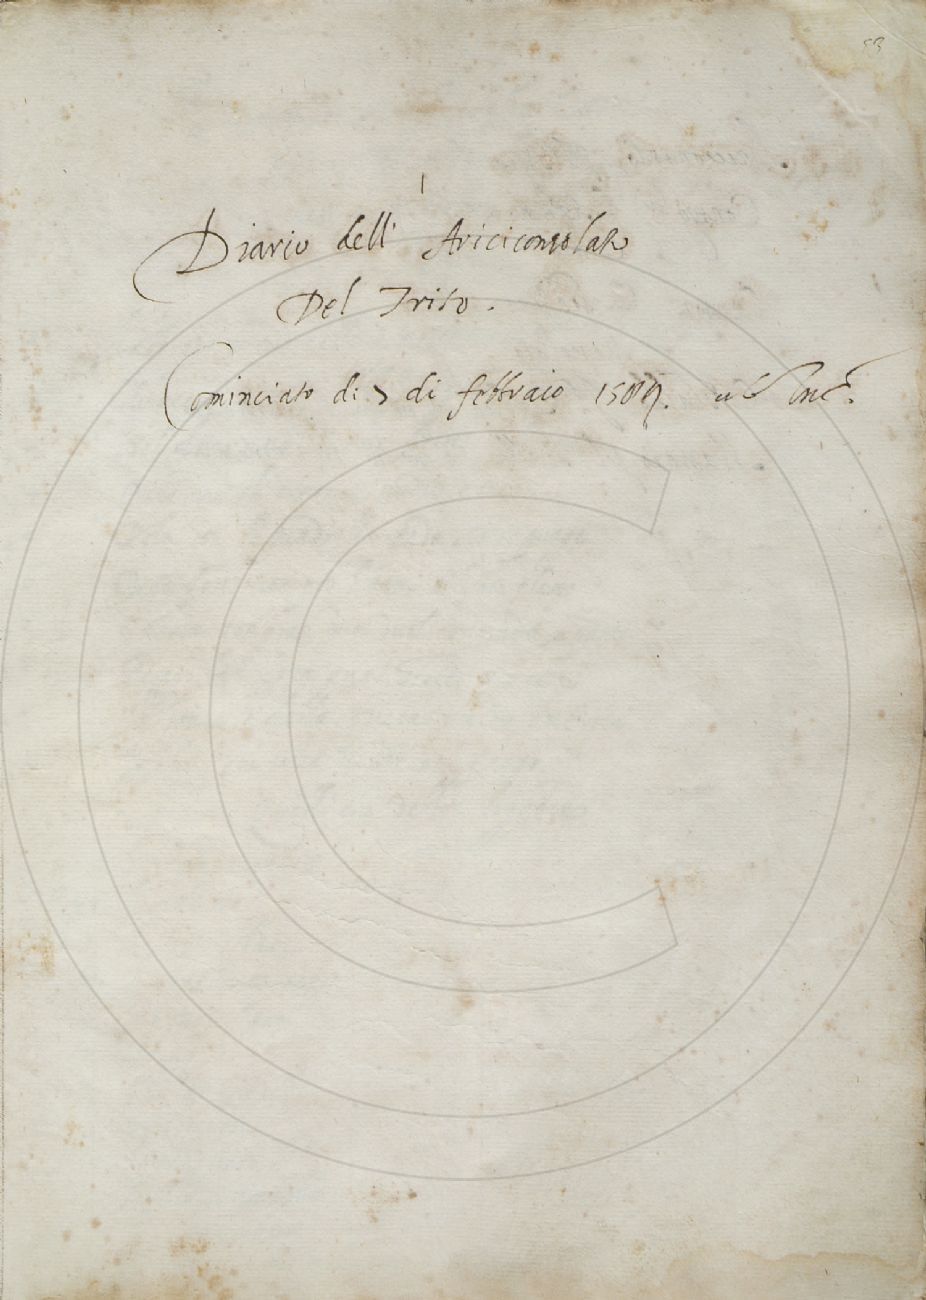 53
Diario dell' Ariciconsolato
Del Trito.
Cominciato di 7 di febbraio 1589. ab Inc.